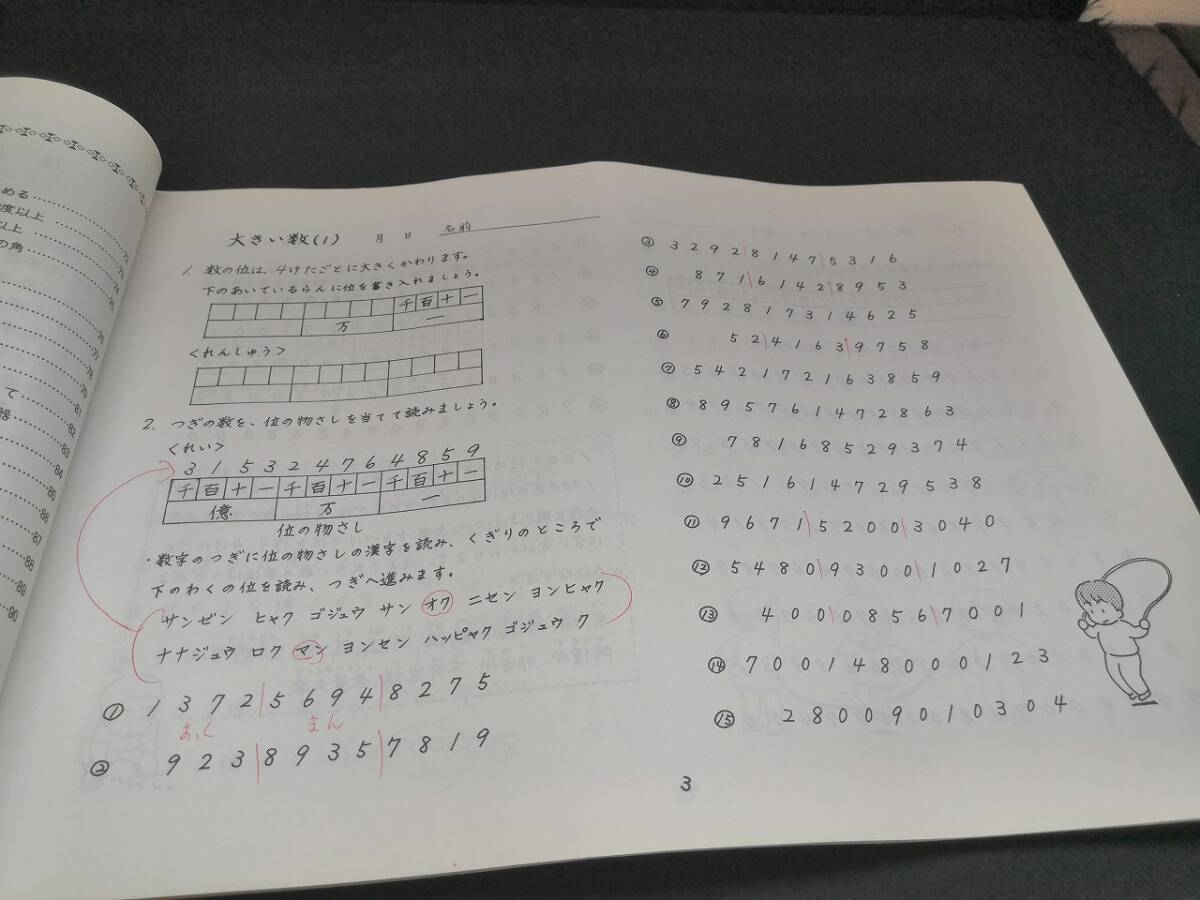 める
度以上
以上
の角
て
器
76
77
78
79
81
82
83
84
85
86
87
88
89
90
大きい数(1) 月 日 名前
1. 数の位は、4けたごとに大きくかわります。
下のあいているらんに位を書き入れましょう。
千 百 十 一
万 一
<れんしゅう>
2. つぎの数を、位の物さしを当てて読みましょう。
<れい>
3 1 5 3 2 4 7 6 4 8 5 9
千 百 十 一 千 百 十 一 千 百 十 一
億 万 一
位の物さし
・数字のつぎに位の物さしの漢字を読み、くぎりのところで
下のわくの位を読み、つぎへ進みます。
サンゼン ヒャク ゴジュウ サン オク ニセン ヨンヒャク
ナナジュウ ロク マン ヨンセン ハッピャク ゴジュウ ク
① 1 3 7 2 5 6 9 4 8 2 7 5
おく まん
② 9 2 3 8 9 3 5 7 8 1 9
③ 3 2 9 2 8 1 4 7 5 3 1 6
④ 8 7 1 6 1 4 2 8 9 5 3
⑤ 7 9 2 8 1 7 3 1 4 6 2 5
⑥ 5 2 4 1 6 3 9 7 5 8
⑦ 5 4 2 1 7 2 1 6 3 8 5 9
⑧ 8 9 5 7 6 1 4 7 2 8 6 3
⑨ 7 8 1 6 8 5 2 9 3 7 4
⑩ 2 5 1 6 1 4 7 2 9 5 3 8
⑪ 9 6 7 1 5 2 0 0 3 0 4 0
⑫ 5 4 8 0 9 3 0 0 1 0 2 7
⑬ 4 0 0 0 8 5 6 7 0 0 1
⑭ 7 0 0 1 4 8 0 0 0 1 2 3
⑮ 2 8 0 0 9 0 1 0 3 0 4
3